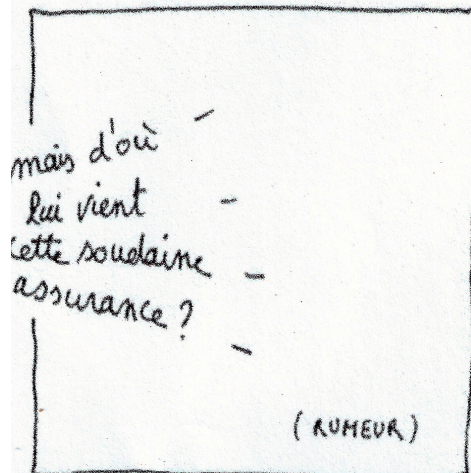 mais d'où
lui vient
cette soudaine
assurance ?
(RUMEUR)